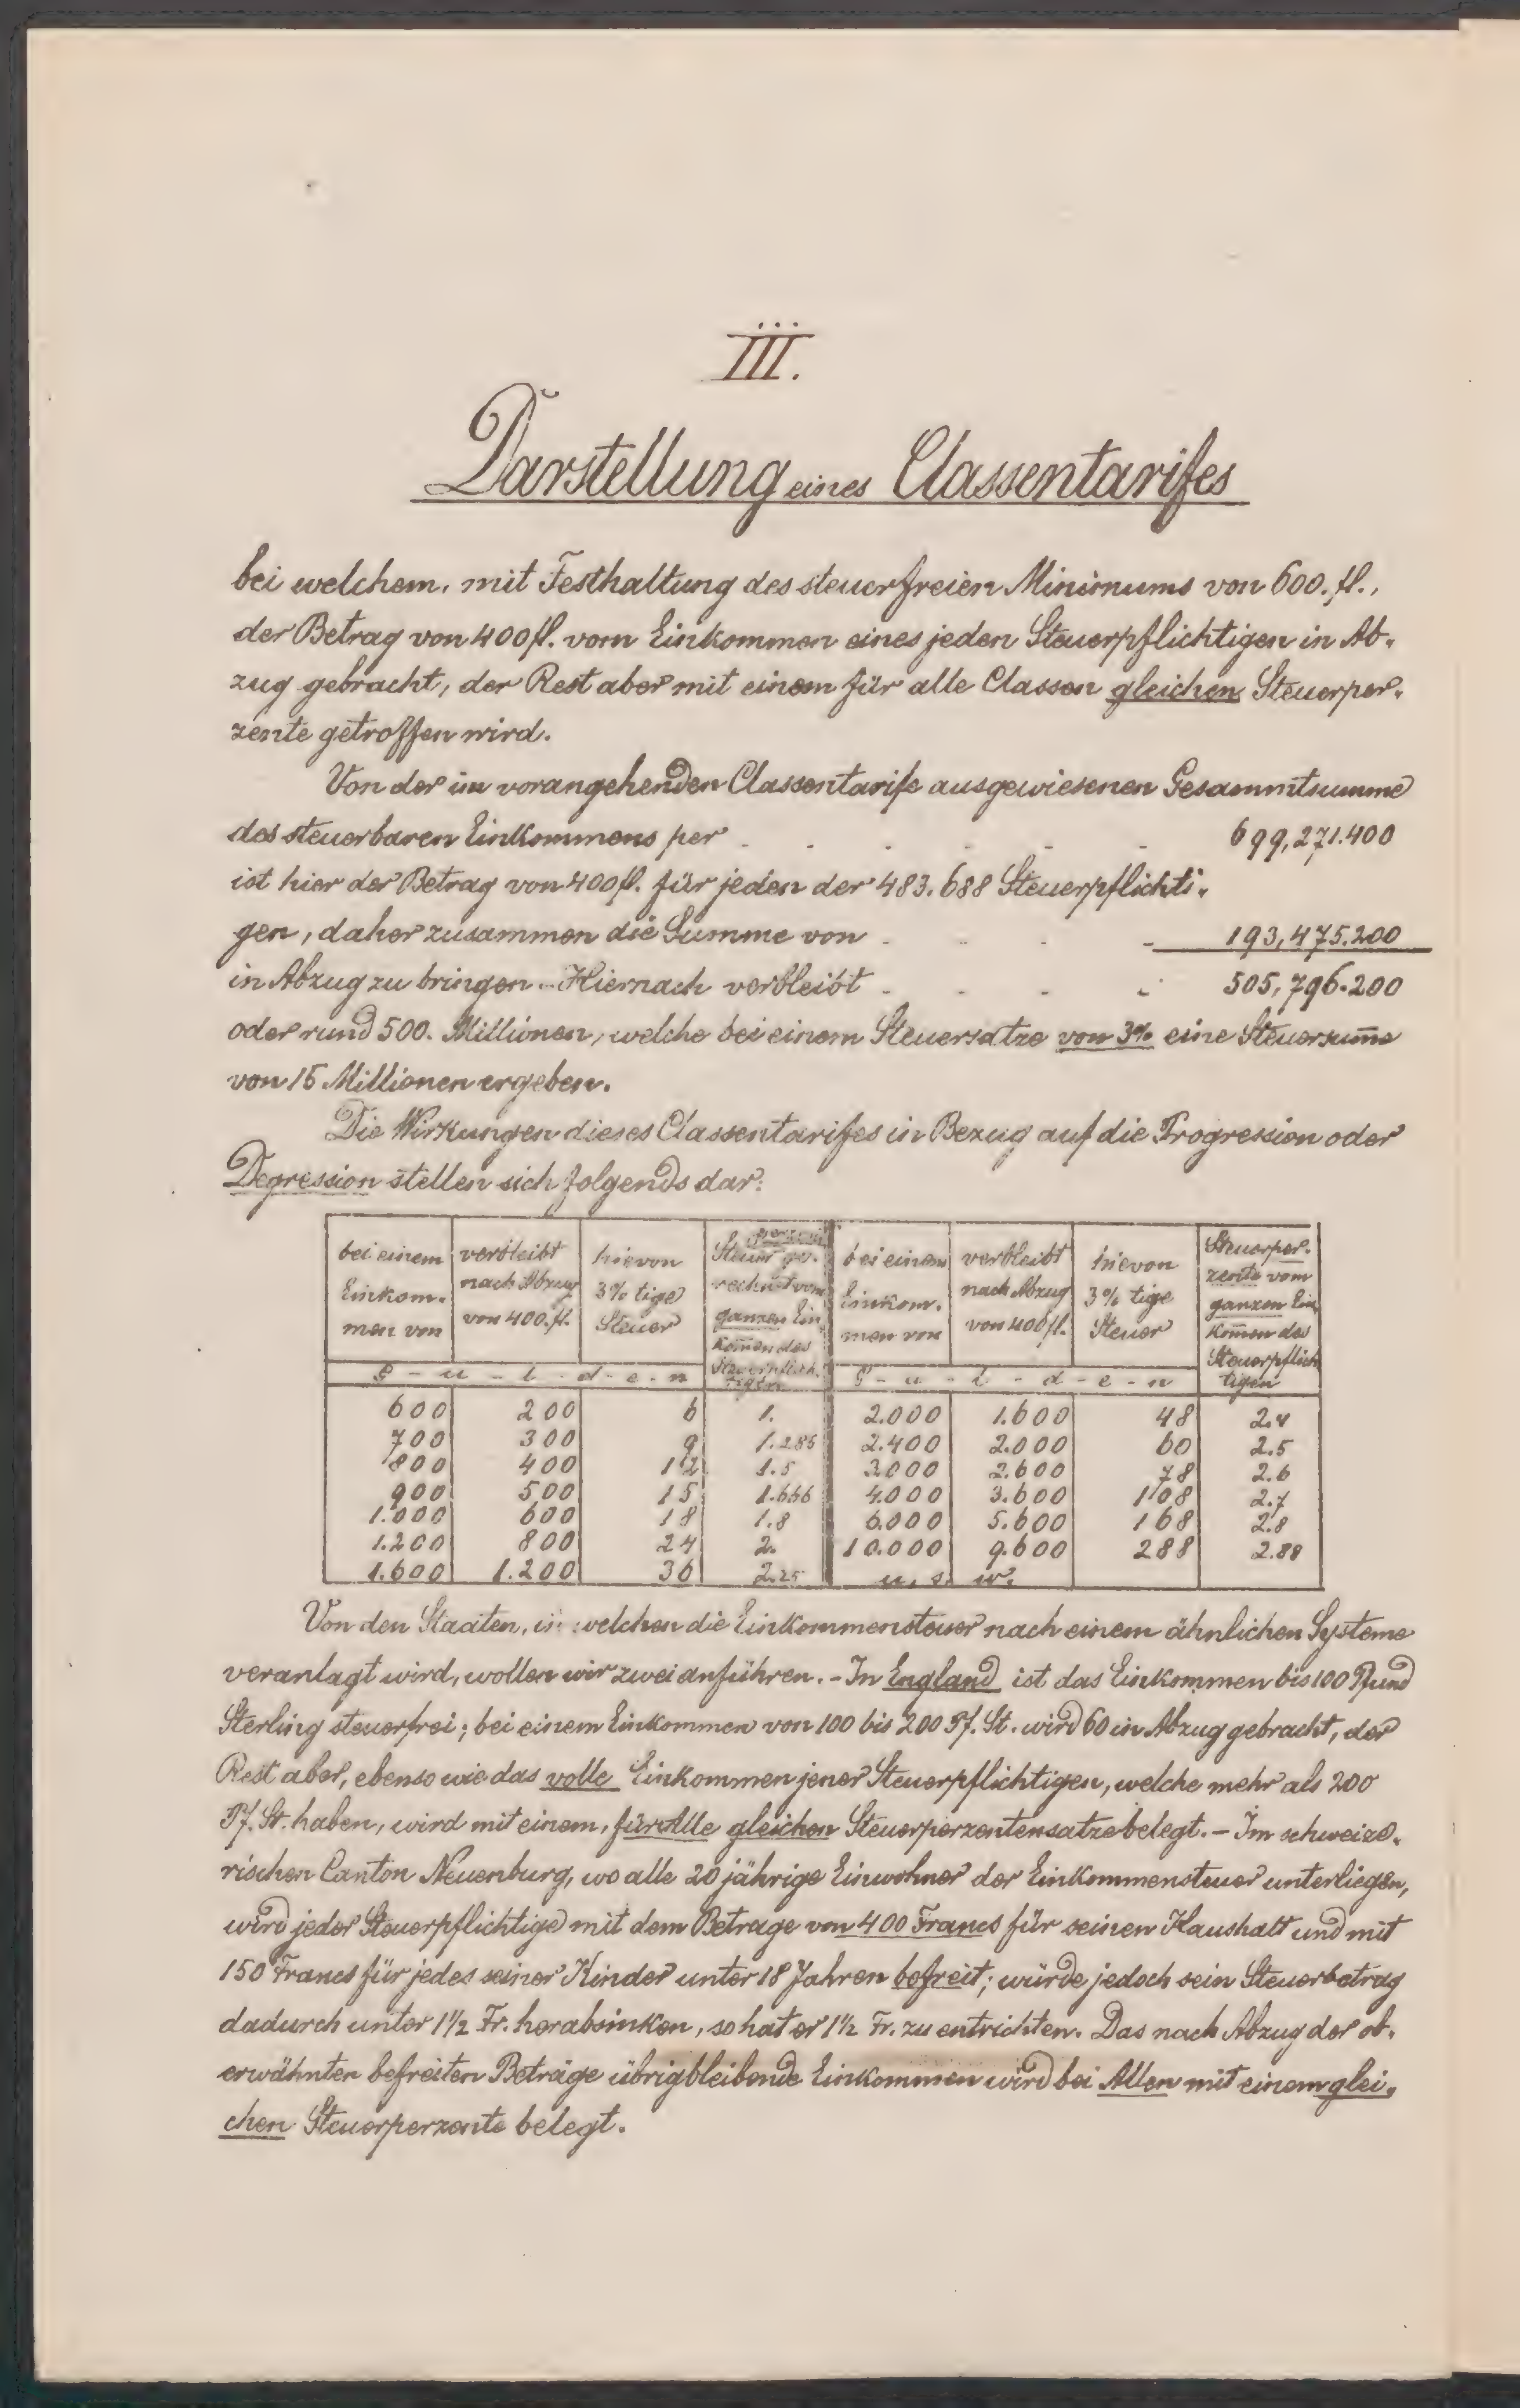 III.
Darstellung eines Classentarifes
bei welchem, mit Festhaltung des steuerfreien Minimums von 600. fl.,
der Betrag von 400 fl. vom Einkommen eines jeden Steuerpflichtigen in Ab-
zug gebracht, der Rest aber mit einem für alle Classen gleichen Steuerper-
zente getroffen wird.
Von der im vorangehenden Classentarife ausgewiesenen Gesammtsumme
des steuerbaren Einkommens per . . . . . 699,271.400
ist hier der Betrag von 400 fl. für jeden der 483.688 Steuerpflichti-
gen, daher zusammen die Summe von . . . . 193,475.200
in Abzug zu bringen. - Hiernach verbleibt . . . . 505,796.200
oder rund 500. Millionen, welche bei einem Steuersatze von 3% eine Steuersum̅e
von 15 Millionen ergeben.
Die Wirkungen dieses Classentarifes in Bezug auf die Progression oder
Degression stellen sich folgends dar:
bei einem Einkom- men von | verbleibt nach Abzug von 400. fl. | hievon 3% tige Steuer | Steuer ge- rechnet vom ganzen Ein kom̅en des Steuerpflich- tigen | bei einem Einkom- men von | verbleibt nach Abzug von 400 fl. | hievon 3% tige Steuer | Steuerper- zente vom ganzen Ein kom̅en des Steuerpflich tigen
G - u - l - d - e - n | G - u - l - d - e - n
600 200 6 1. 2.000 1.600 48 2.4
700 300 9 1.285 2.400 2.000 60 2.5
800 400 12 1.5 3.000 2.600 78 2.6
900 500 15 1.666 4.000 3.600 108 2.7
1.000 600 18 1.8 6.000 5.600 168 2.8
1.200 800 24 2. 10.000 9.600 288 2.88
1.600 1.200 36 2.25 u. s. w.
Von den Staaten, in welchen die Einkommensteuer nach einem ähnlichen Systeme
veranlagt wird, wollen wir zwei anführen. - In England ist das Einkommen bis 100 Pfund
Sterling steuerfrei; bei einem Einkommen von 100 bis 200 Pf. St. wird 60 in Abzug gebracht, der
Rest aber, ebenso wie das volle Einkommen jener Steuerpflichtigen, welche mehr als 200
Pf. St. haben, wird mit einem, für Alle gleichen Steuerperzentensatze belegt. - Im schweize-
rischen Canton Neuenburg, wo alle 20 jährige Einwohner der Einkommensteuer unterliegen,
wird jeder Steuerpflichtige mit dem Betrage von 400 Francs für seinen Haushalt und mit
150 Francs für jedes seiner Kinder unter 18 Jahren befreit; würde jedoch sein Steuerbetrag
dadurch unter 1½ Fr. herabsinken, so hat er 1½ Fr. zu entrichten. Das nach Abzug der ob-
erwähnten befreiten Beträge übrigbleibende Einkommen wird bei Allen mit einem glei-
chen Steuerperzente belegt.